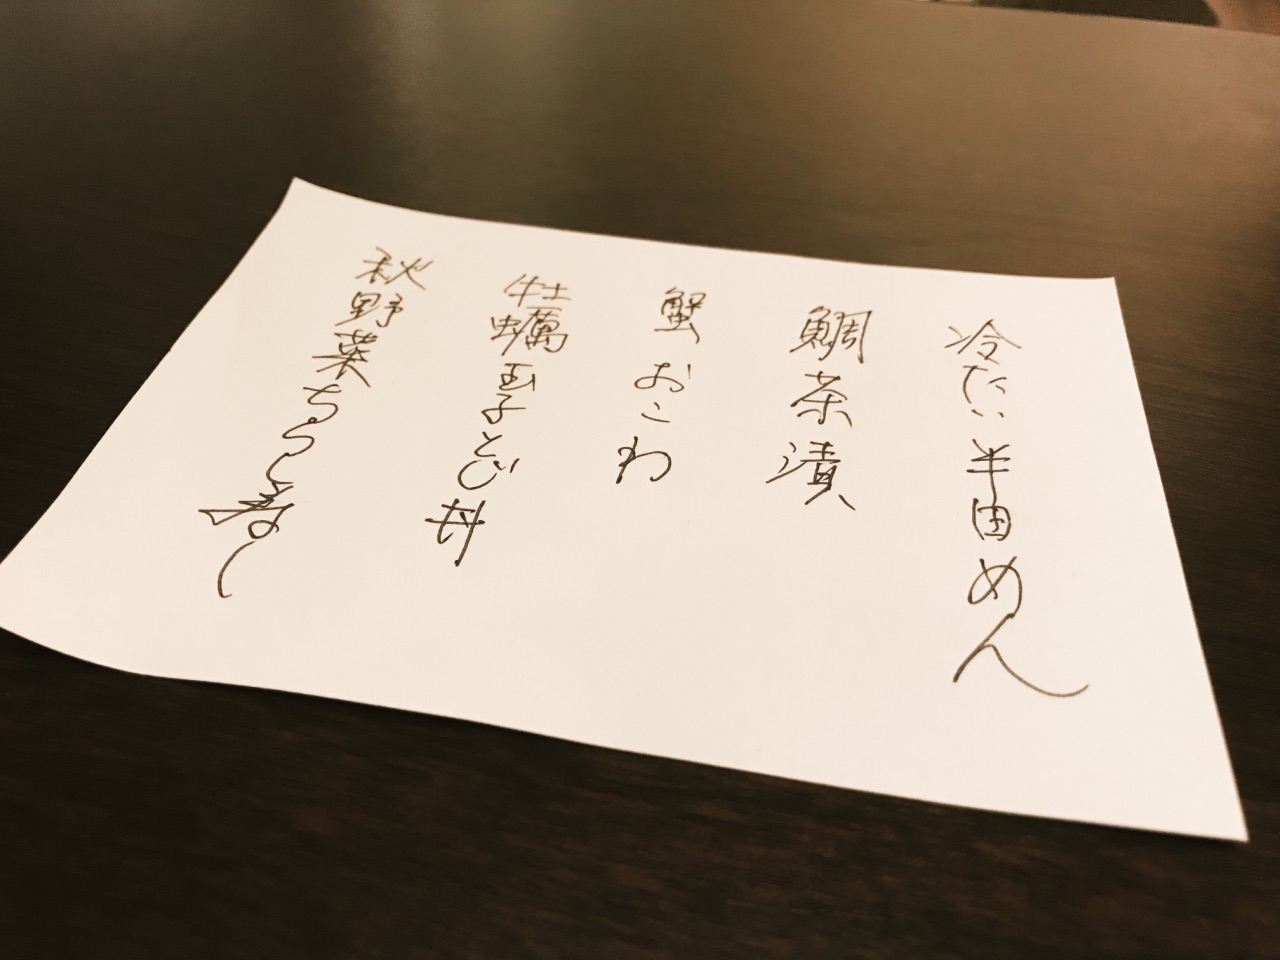 冷たい半田めん
鯛茶漬
蟹おこわ
牡蠣玉子とじ丼
秋野菜ちらし寿し